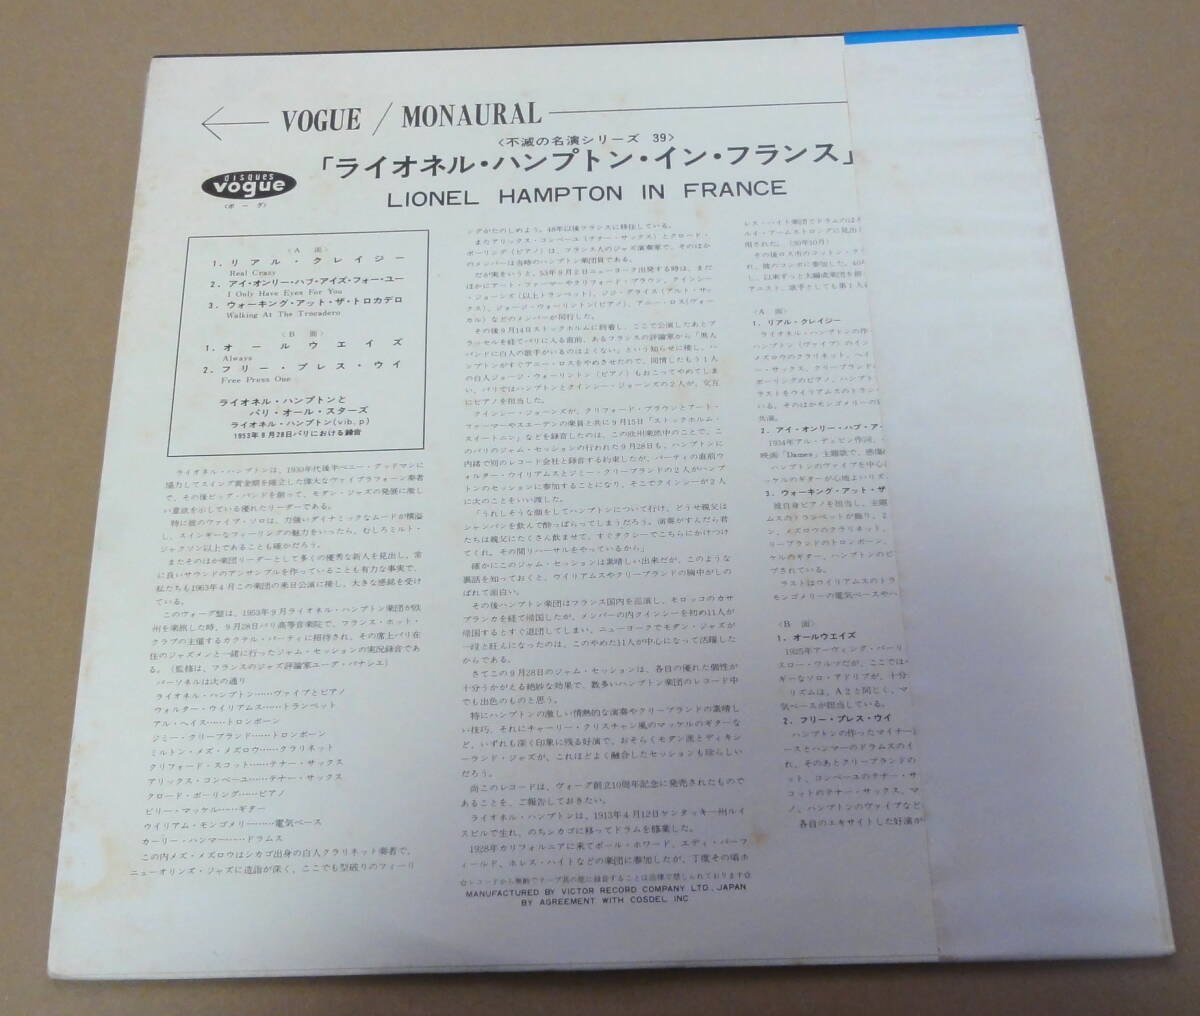 VOGUE / MONAURAL
〈不滅の名演シリーズ 39〉
「ライオネル・ハンプトン・イン・フランス」
LIONEL HAMPTON IN FRANCE
disques
vogue
〈ボーグ〉
〈A 面〉
1. リアル・クレイジー
Real Crazy
2. アイ・オンリー・ハブ・アイズ・フォー・ユー
I Only Have Eyes For You
3. ウォーキング・アット・ザ・トロカデロ
Walking At The Trocadero
〈B 面〉
1. オールウエイズ
Always
2. フリー・プレス・ウイ
Free Press One
ライオネル・ハンプトンと
パリ・オール・スターズ
ライオネル・ハンプトン(vib, p)
1953年9月28日パリにおける録音
ライオネル・ハンプトンは、1930年代後半ベニー・グッドマンに
協力してスイング黄金期を確立した偉大なヴァイブラフォーン奏者
で、その後ビッグ・バンドを創って、モダン・ジャズの発展に激し
い意欲を示している優れたリーダーである。
特に彼のヴァイブ・ソロは、力強いダイナミックなムードが横溢
し、スインギーなフィーリングの魅力をいったら、むしろミルト・
ジャクソン以上であることも確かだろう。
またそのほか楽団リーダーとして多くの優秀な新人を見出し、常
に良いサウンドのアンサンブルを作っていることも有力な事実で、
私たちも1963年4月この楽団の来日公演に接し、大きな感銘を受け
ている。
このヴォーグ盤は、1953年9月ライオネル・ハンプトン楽団が欧
州を楽旅した時、9月28日パリ高等音楽院で、フランス・ホット・
クラブの主催するカクテル・パーティに招待され、その席上パリ在
住のジャズメンと一緒に行ったジャム・セッションの実況録音であ
る。（監修は、フランスのジャズ評論家ユーグ・パナシエ）
パーソネルは次の通り
ライオネル・ハンプトン……ヴァイブとピアノ
ウォルター・ウイリアムス……トランペット
アル・ヘイス……トロンボーン
ジミー・クリーブランド……トロンボーン
ミルトン・メズ・メズロウ……クラリネット
クリフォード・スコット……テナー・サックス
アリックス・コンベーユ……テナー・サックス
クロード・ボーリング……ピアノ
ビリー・マッケル……ギター
ウイリアム・モンゴメリー………電気ベース
カーリー・ハンマー………ドラムス
この内メズ・メズロウはシカゴ出身の白人クラリネット奏者で、
ニューオリンズ・ジャズに造詣が深く、ここでも型破りのフィーリ
ングがたのしめよう。48年以後フランスに移住している。
またアリックス・コンベーユ（テナー・サックス）とクロード・
ボーリング（ピアノ）は、フランス人のジャズ演奏家で、そのほか
のメンバーは当時のハンプトン楽団員である。
だが実をいうと、53年9月2日ニューヨーク出発する時は、まだ
ほかにアート・ファーマーやクリフォード・ブラウン、クインシー
・ジョーンズ（以上トランペット）、ジジ・グライス（アルト・サッ
クス）、ジョージ・ウォーリントン（ピアノ）、アニー・ロス（ヴォー
カル）などのメンバーが同行した。
その後9月14日ストックホルムに到着し、ここで公演したあとブ
ラッセルを経てパリに入る直前、あるフランスの評論家から「黒人
バンドに白人の歌手がいるのはよくない」という知らせに接し、ハ
ンプトンがすぐアニー・ロスをやめさせたので、同情したもう1人
の白人ジョージ・ウォーリントン（ピアノ）もおこってやめてしま
い、パリではハンプトンとクインシー・ジョーンズの2人が、交互
にピアノを担当した。
クインシー・ジョーンズが、クリフォード・ブラウンとアート・
ファーマーやスエーデンの楽員と共に9月15日「ストックホルム・
スイートニン」などを録音したのは、この欧州楽旅中のことで、こ
のパリのジャム・セッションの行われた9月28日も、ハンプトンに
内緒で別のレコード会社と録音する約束したが、パーティの直前ウ
ォルター・ウイリアムスとジミー・クリーブランドの2人がハンプ
トンのセッションに参加することになり、そこでクインシーが2人
に次のことをいい渡した。
「うれしそうな顔をしてハンプトンについて行け、どうせ親父は
シャンパンを飲んで酔っぱらってしまうだろう。演奏がすんだら君
たちは親父にたくさん飲ませて、すぐタクシーでこちらにかけつけ
てくれ。その間リハーサルをやっているから」
確かにこのジャム・セッションは素晴しい出来だが、このような
裏話を知っておくと、ウイリアムスやクリーブランドの胸中がしの
ばれて面白い。
その後ハンプトン楽団はフランス国内を巡演し、モロッコのカサ
ブランカを経て帰国したが、メンバーの内クインシーを初め11人が
帰国するとすぐ退団してしまい、ニューヨークでモダン・ジャズが
一段と旺んになったのは、このやめた11人が中心になって活躍した
からである。
さてこの9月28日のジャム・セッションは、各自の優れた個性が
十分うかがえる絶妙な効果で、数多いハンプトン楽団のレコード中
でも出色のものと思う。
特にハンプトンの激しい情熱的な演奏やクリーブランドの素晴し
い技巧、それにチャーリー・クリスチャン風のマッケルのギターな
ど、いずれも深く印象に残る好演で、おそらくモダン派とディキシ
ーランド・ジャズが、これほどよく融合したセッションも珍らしい
だろう。
尚このレコードは、ヴォーグ創立10周年記念に発売されたもので
あることを、ご報告しておきたい。
ライオネル・ハンプトンは、1913年4月12日ケンタッキー州ルイ
スビルで生れ、のちシカゴに移ってドラムを修業した。
1928年カリフォルニアに来てポール・ホワード、エディ・バーフ
ィールド、ホレス・ハイトなどの楽団に参加したが、丁度その頃ホ
☆レコードから無断でテープ其の他に録音することは法律で禁じられております☆
MANUFACTURED BY VICTOR RECORD COMPANY LTD., JAPAN
BY AGREEMENT WITH COSDEL INC
レス・ハイト楽団でドラムのほ
ルイ・アームストロングに見出
用された。（30年10月）
その後ロス市のコットン・ク
れ、彼のコンボに参加した。40
し、以来ずっと大編成楽団を
アニスト、歌手としても第1人
〈A 面〉
1. リアル・クレイジー
ライオネル・ハンプトンの作
ハンプトン（ヴァイブ）のイン
メズロウのクラリネット、ヘイ
ー・サックス、クリーブランド
ボーリングのピアノ、ハンプト
ラストをウイリアムスのトラン
いる。そのほかモンゴメリーの
演。
2. アイ・オンリー・ハブ・ア
1934年アル・デュビン作詞、
映画「Dames」主題歌で、感傷
ハンプトンのヴァイブを中心
ッケルのギターが心地よいリズ
3. ウォーキング・アット・ザ
彼自身ピアノを担当し、主題
ムスのトランペットが飾り、2
ン、メズロウのクラリネット、
リーブランドのトロンボーン、
ケルのギター、ハンプトンのピ
プされている。
ラストはウイリアムスのトラ
モンゴメリーの電気ベースやハ
〈B 面〉
1. オールウエイズ
1925年アーヴィング・バーリ
スロー・ワルツだが、ここでは
ギーなソロ・アドリブが、十分
リズムは、A2と同じく、マ
気ベースが担当している。
2. フリー・プレス・ウイ
ハンプトンの作ったマイナー
ースとハンマーのドラムスのイ
れ、そのあとクリーブランドの
ット、コンベーユのテナー・サ
コットのテナー・サックス、マ
ノ、ハンプトンのヴァイブなど
各自のエキサイトした好演が